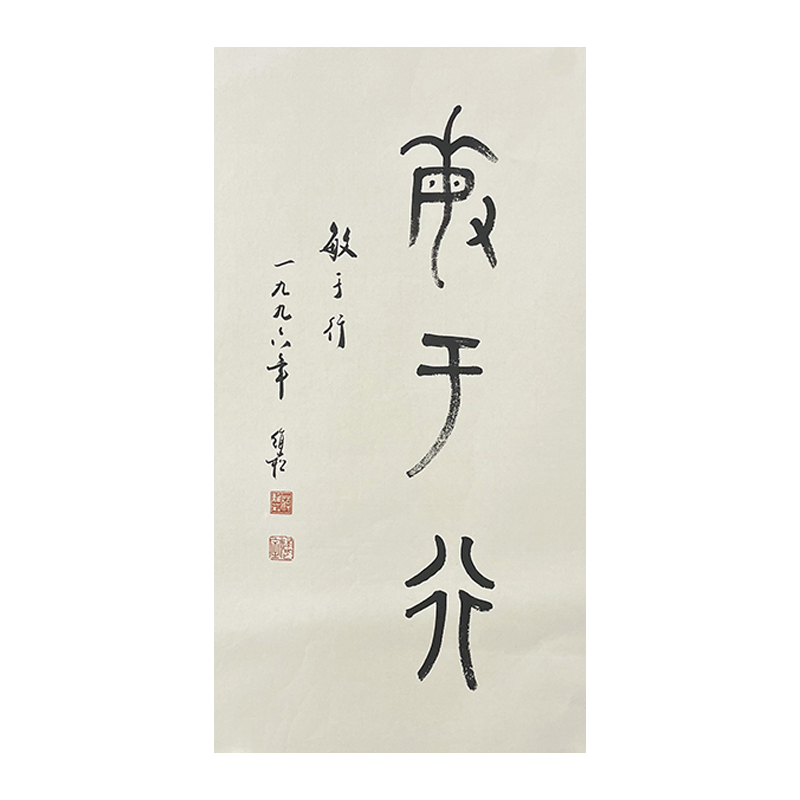 敏于行
敏于行
一九九六年